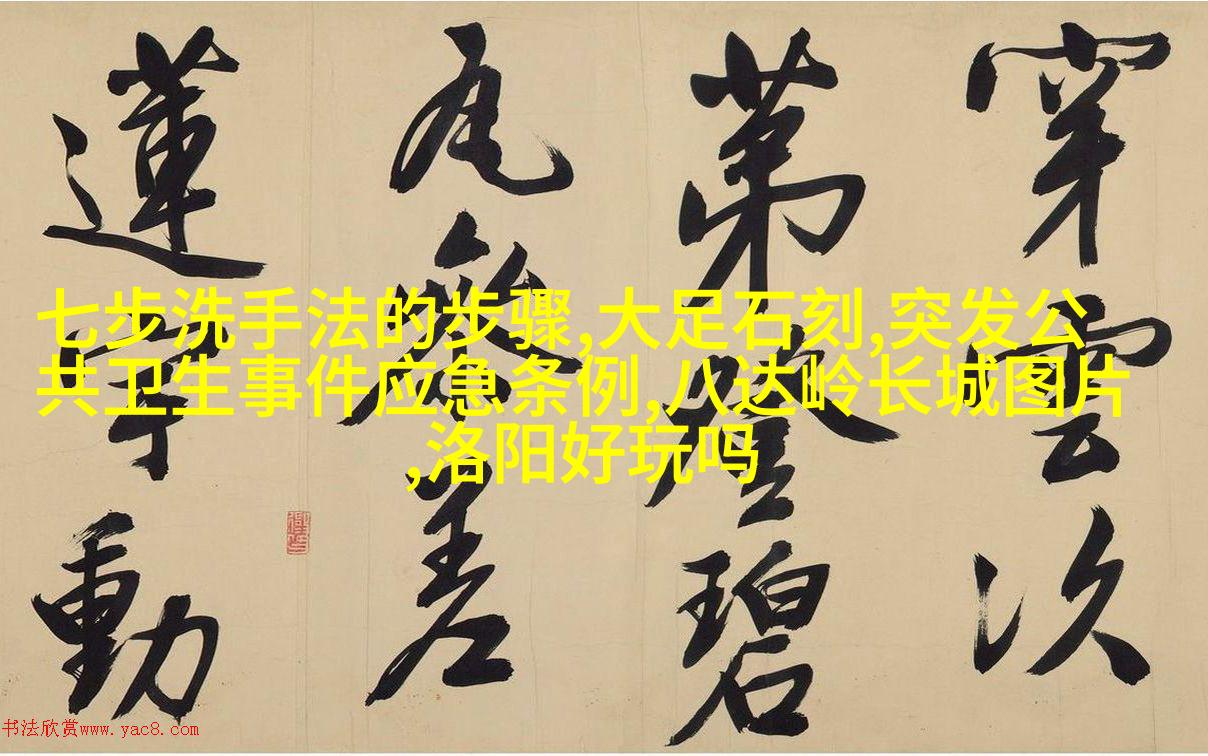 穿雲次
第登碧
瓦參差
蓮宇動
七步洗手法的步骤,大足石刻,突发公
共卫生事件应急条例,八达岭长城图片
,洛阳好玩吗
书法欣赏www.yac8.com